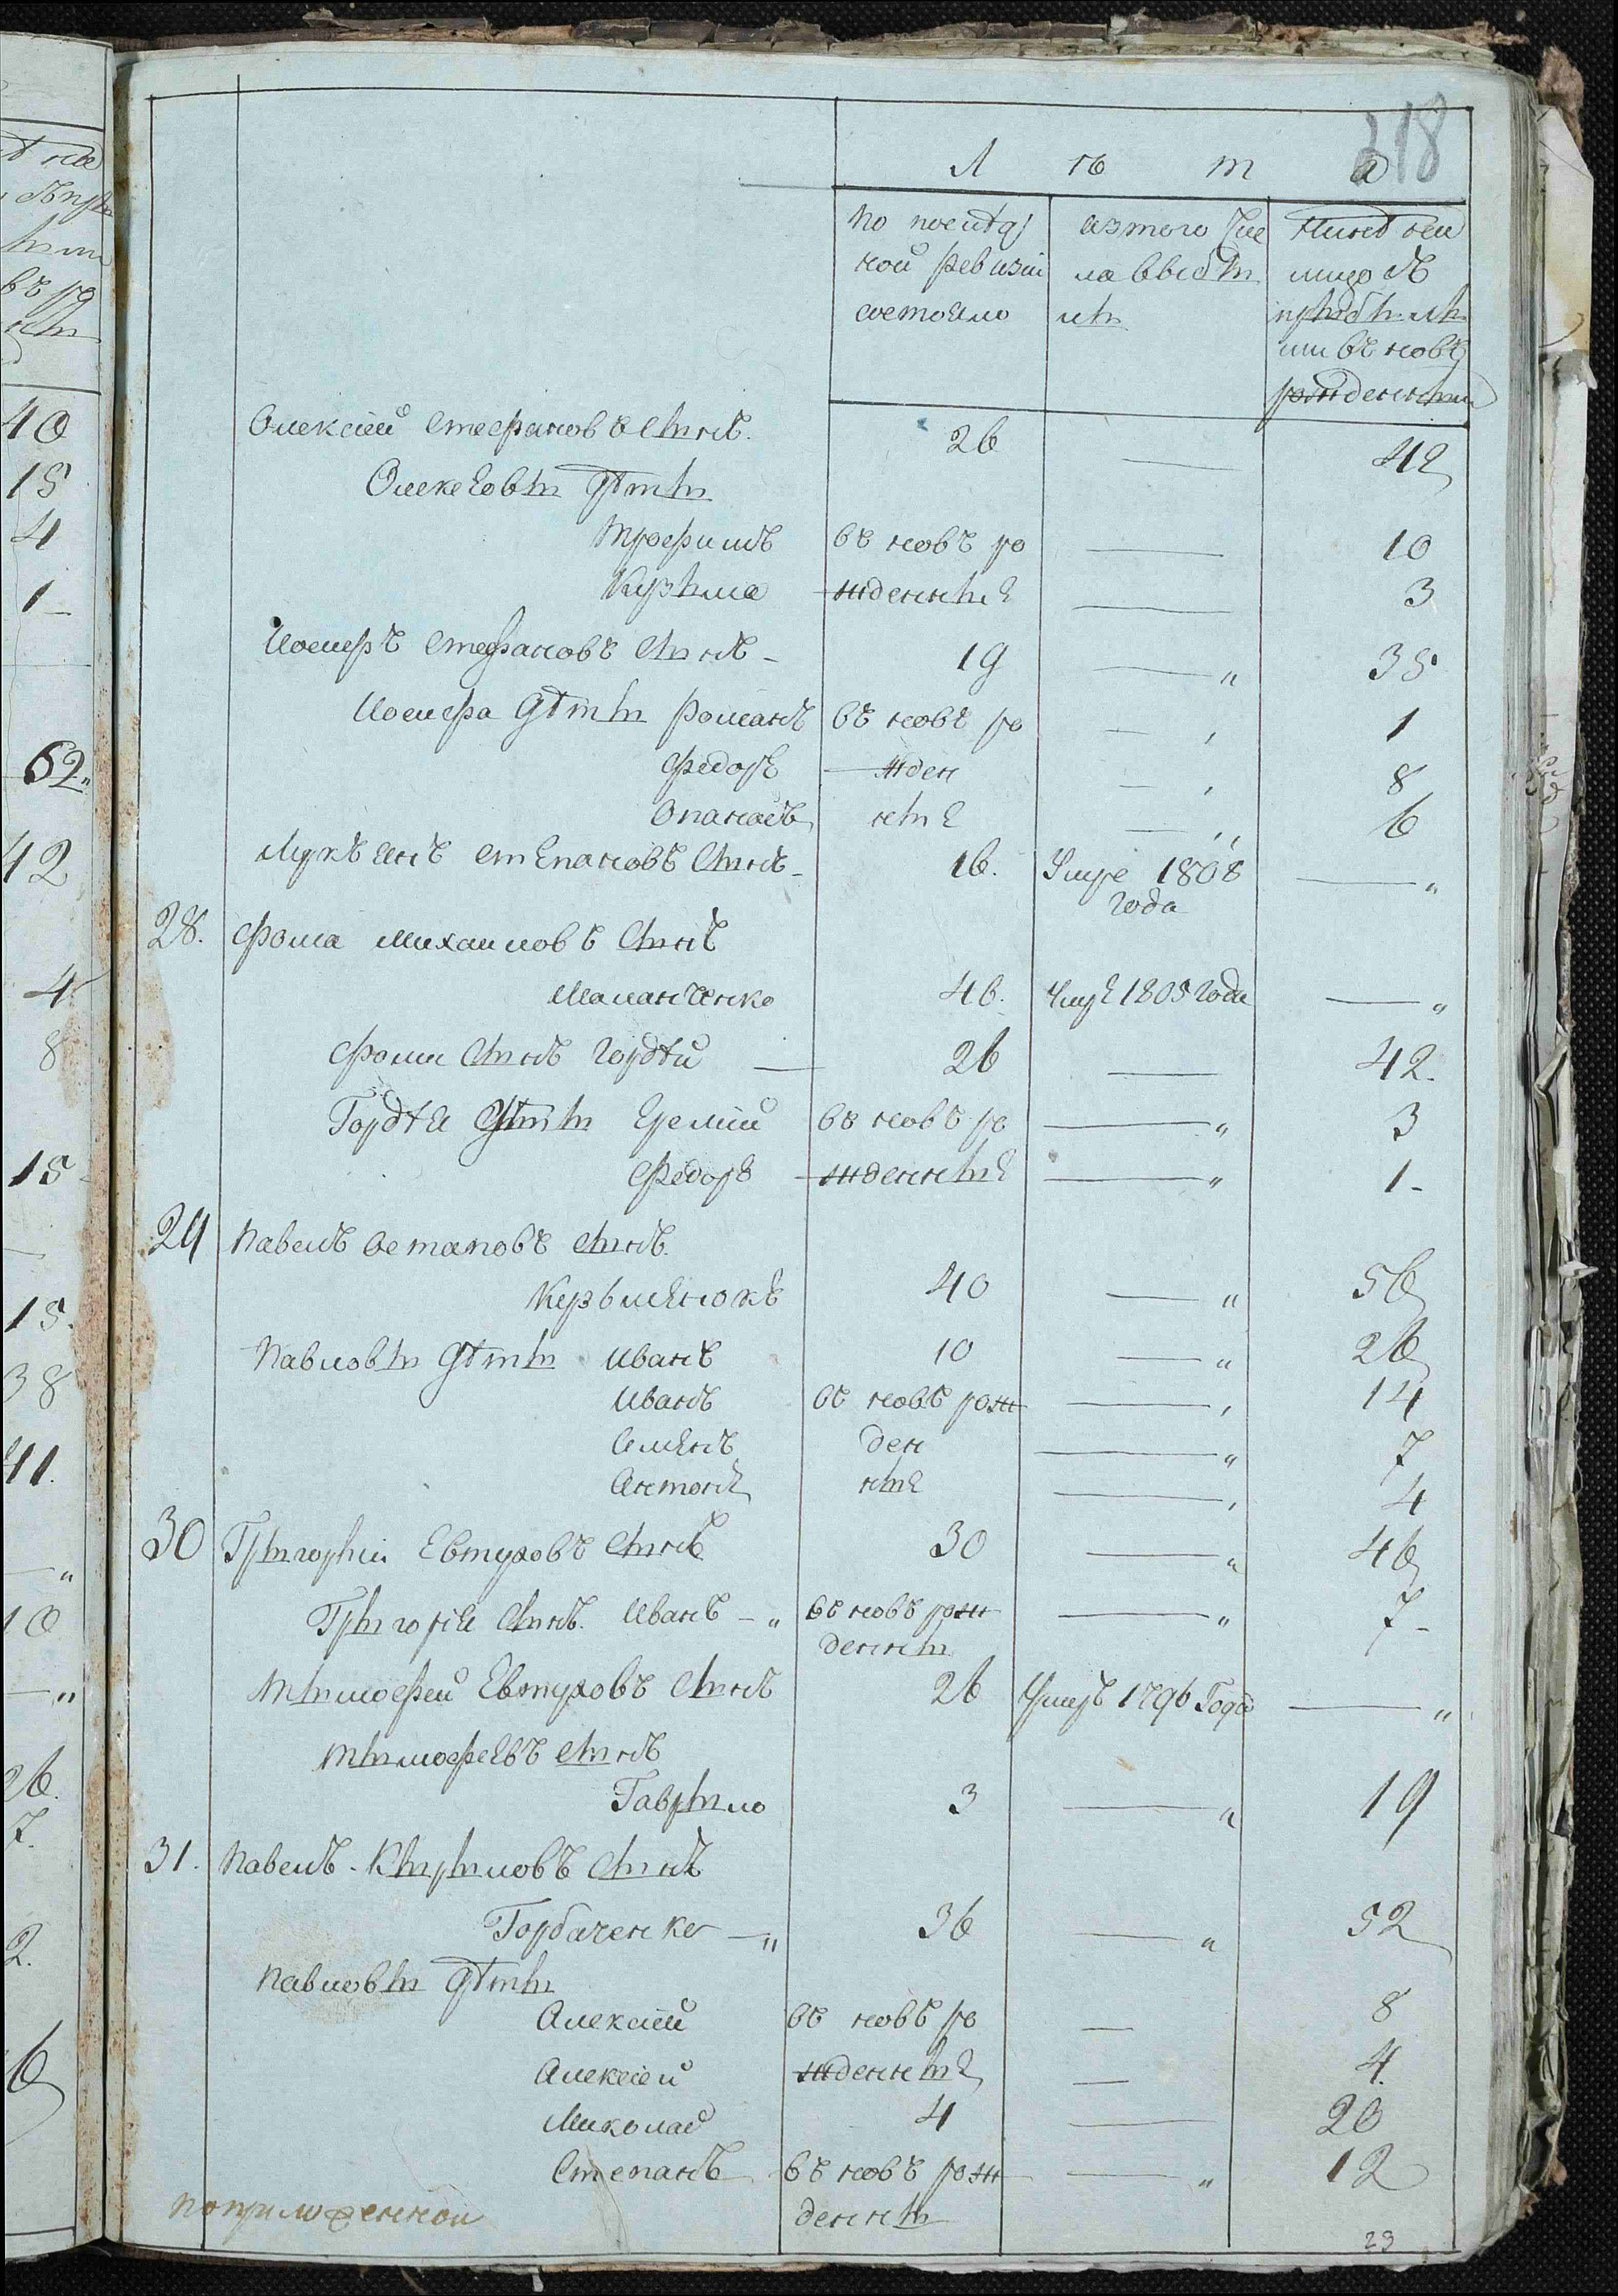 318
Лѣта
по последъ изтого чис Нине кои
ной ревизіи ла выбы лицо съ
состояло ли прибылы
ми въ новъ
рожденними
Олексѣй Стефановъ синъ. 26 — 42
Олексеови дѣти
Трофимъ въ новъ ро — 10
Кузьма жденние — 3
Іосифъ Стефановъ синъ - 19 — „ 35
Иосифа дѣти романъ въ новъ ро — , 1
Федоръ — жден — , 8
Опанасъ ние — „ 6
Лукъянъ степановъ синъ - 16. Умре 1808 — „
года
28. Фома михаиловъ синъ
Маланченко 46. Умре 1805 года — „
Фоми синъ Гордѣй — 26 — 42.
Гордѣя дѣти Еремій въ новъ ро — „ 3
Федоръ жденние — „ 1-
29 Павелъ остаповъ синъ.
Кузьменюкъ 40 — „ 56
Павлови дѣти иванъ 10 — „ 26
Иванъ въ новъ рож — , 14
Семенъ ден — „ 7
Антонъ ние — , 4
30 Григорий Евтуховъ синъ 30 — „ 46
Григорія синъ. Иванъ - „ въ новъ рож — „ 7-
денни
Тимофей Евтуховъ синъ 26 Умеръ 1796 Года — „
тимофеевъ синъ
Гаврило 3 — „ 19
31. Павелъ - Кириловъ синъ
Горбаченко — „ 36 — „ 52
Павлови дѣти
Алексѣй въ новъ ро — 8
Алексей жденние — 4.
Миколай 4 — 20
Степанъ въ новъ рож — „ 12
поприложенной денни
23
40
15
4
1-
62„
42
4
8
15
15.
38
41.
„
10
„
26.
7.
2.
6